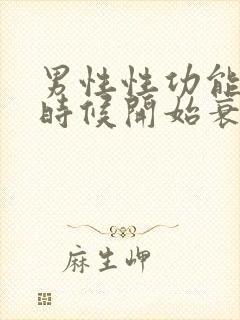 男性性功能
時候開始衰
麻生岬